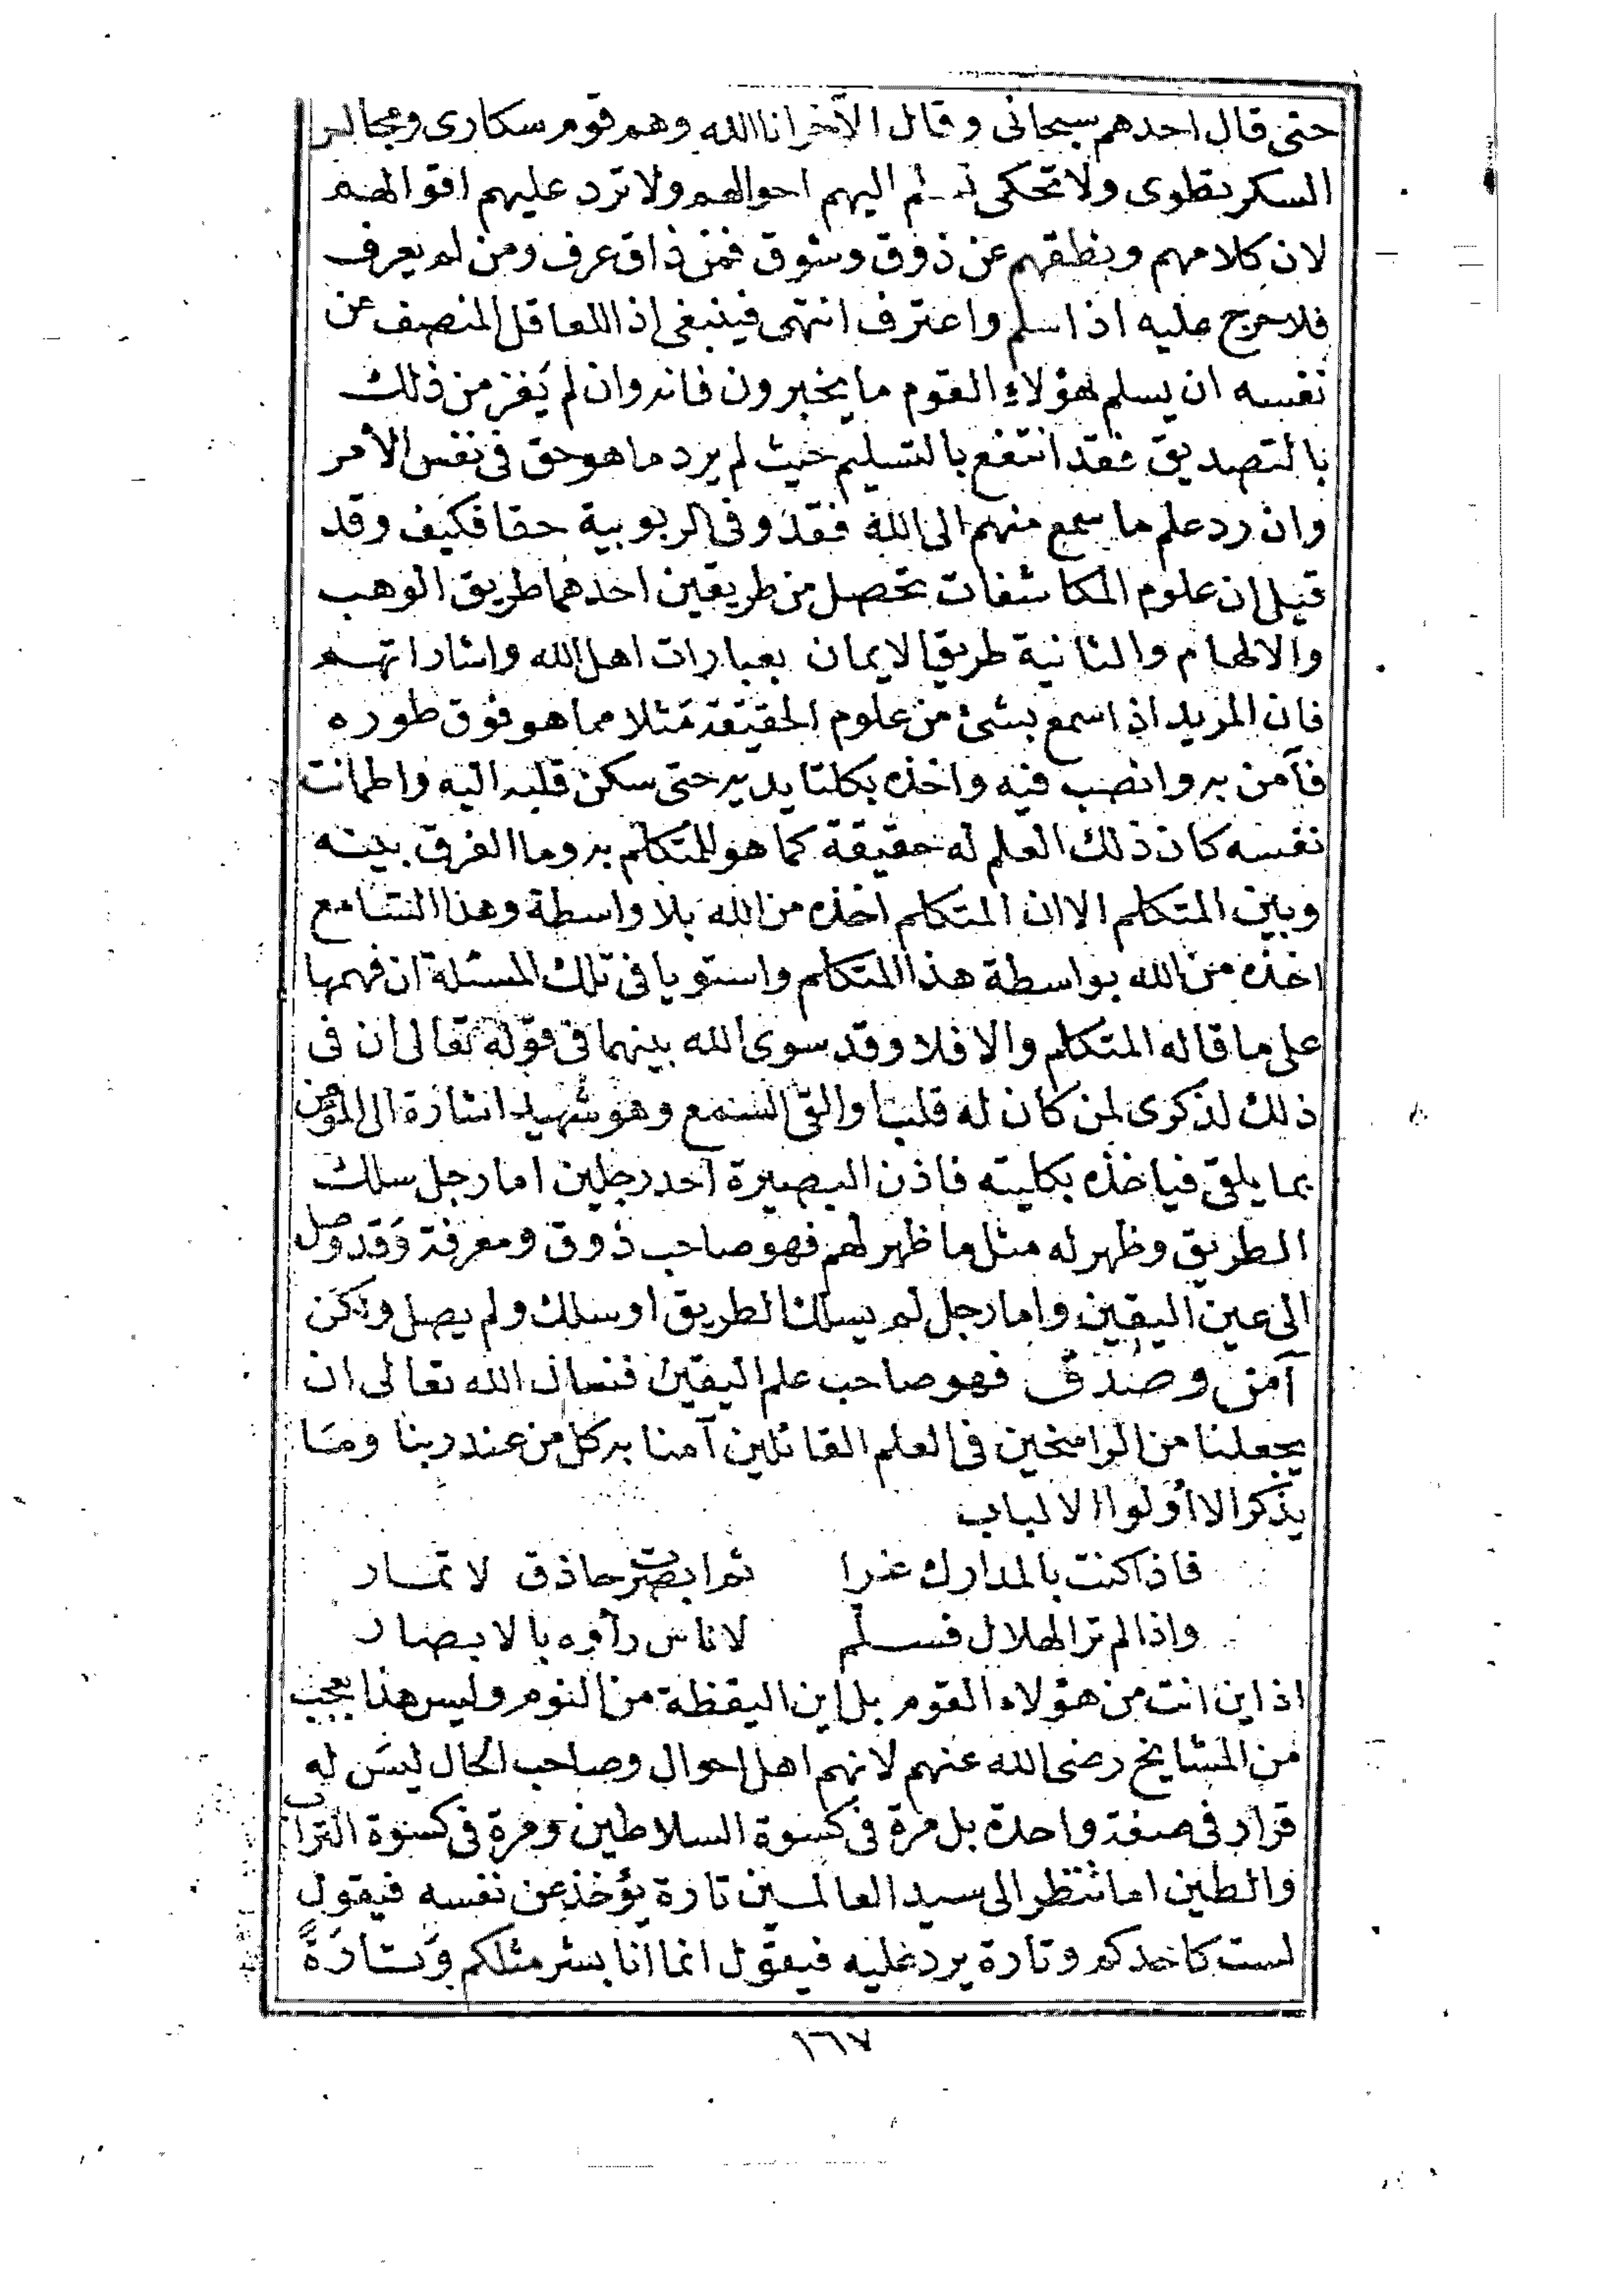 حتى قال احدهم سبحانى وقال الآخر انا الله وهم قوم سكارى ومجالس
السكر تطوى ولا تحكى نسلم اليهم احوالهم ولا نرد عليهم اقوالهم
لان كلامهم ونطقهم عن ذوق وشوق فمن ذاق عرف ومن لم يعرف
فلا حرج عليه اذا سلم واعترف انتهى فينبغى اذا للعاقل المنصف عن
نفسه ان يسلم لهؤلاء القوم ما يخبرون فانه وان لم يفز من ذلك
بالتصديق فقد انتفع بالتسليم حيث لم يرد ما هو حق فى نفس الأمر
وان رد علم ما سمع منهم الى الله فقد وفى الربوبية حقا فكيف وقد
قيل ان علوم المكاشفات تحصل من طريقين احدهما طريق الوهب
والالهام والثانية طريق الايمان بعبارات اهل الله واشاراتهم
فان المريد اذا سمع بشئ من علوم الحقيقة مثلا مما هو فوق طوره
فآمن به وانصب فيه واخذه بكلتا يديه حتى سكن قلبه اليه واطمانت
نفسه كان ذلك العلم له حقيقة كما هو للمتكلم به وما الفرق بينه
وبين المتكلم الا ان المتكلم اخذه من الله بلا واسطة وهذا السامع
اخذه من الله بواسطة هذا المتكلم واستويا فى تلك المسئلة ان فهمها
على ما قاله المتكلم والا فلا وقد سوى الله بينهما فى قوله تعالى ان فى
ذلك لذكرى لمن كان له قلب او القى السمع وهو شهيد اشارة الى المؤمن
بما يلقى فياخذه بكليته فاذن البصيرة احد رجلين اما رجل سلك
الطريق وظهر له مثل ما ظهر لهم فهو صاحب ذوق ومعرفة وقد وصل
الى عين اليقين واما رجل لم يسلك الطريق او سلك ولم يصل ولكن
آمن وصدق فهو صاحب علم اليقين فنسال الله تعالى ان
يجعلنا من الراسخين فى العلم القائلين آمنا به كل من عند ربنا وما
يذكر الا أولوا الالباب
فاذا كنت بالمدارك غرا ثم ابصرت حاذق لا تمار
واذا لم تر الهلال فسلم لاناس رأوه بالابصار
اذ اين انت من هؤلاء القوم بل اين اليقظة من النوم وليس هذا بعجب
من المشايخ رضى الله عنهم لانهم اهل احوال وصاحب الحال ليس له
قرار فى صفة واحدة بل مرة فى كسوة السلاطين ومرة فى كسوة التراب
والطين اما تنظر الى سيد العالمين تارة يؤخذ عن نفسه فيقول
لست كاحدكم وتارة يرد عليه فيقول انما انا بشر مثلكم وتارة
١٦٧